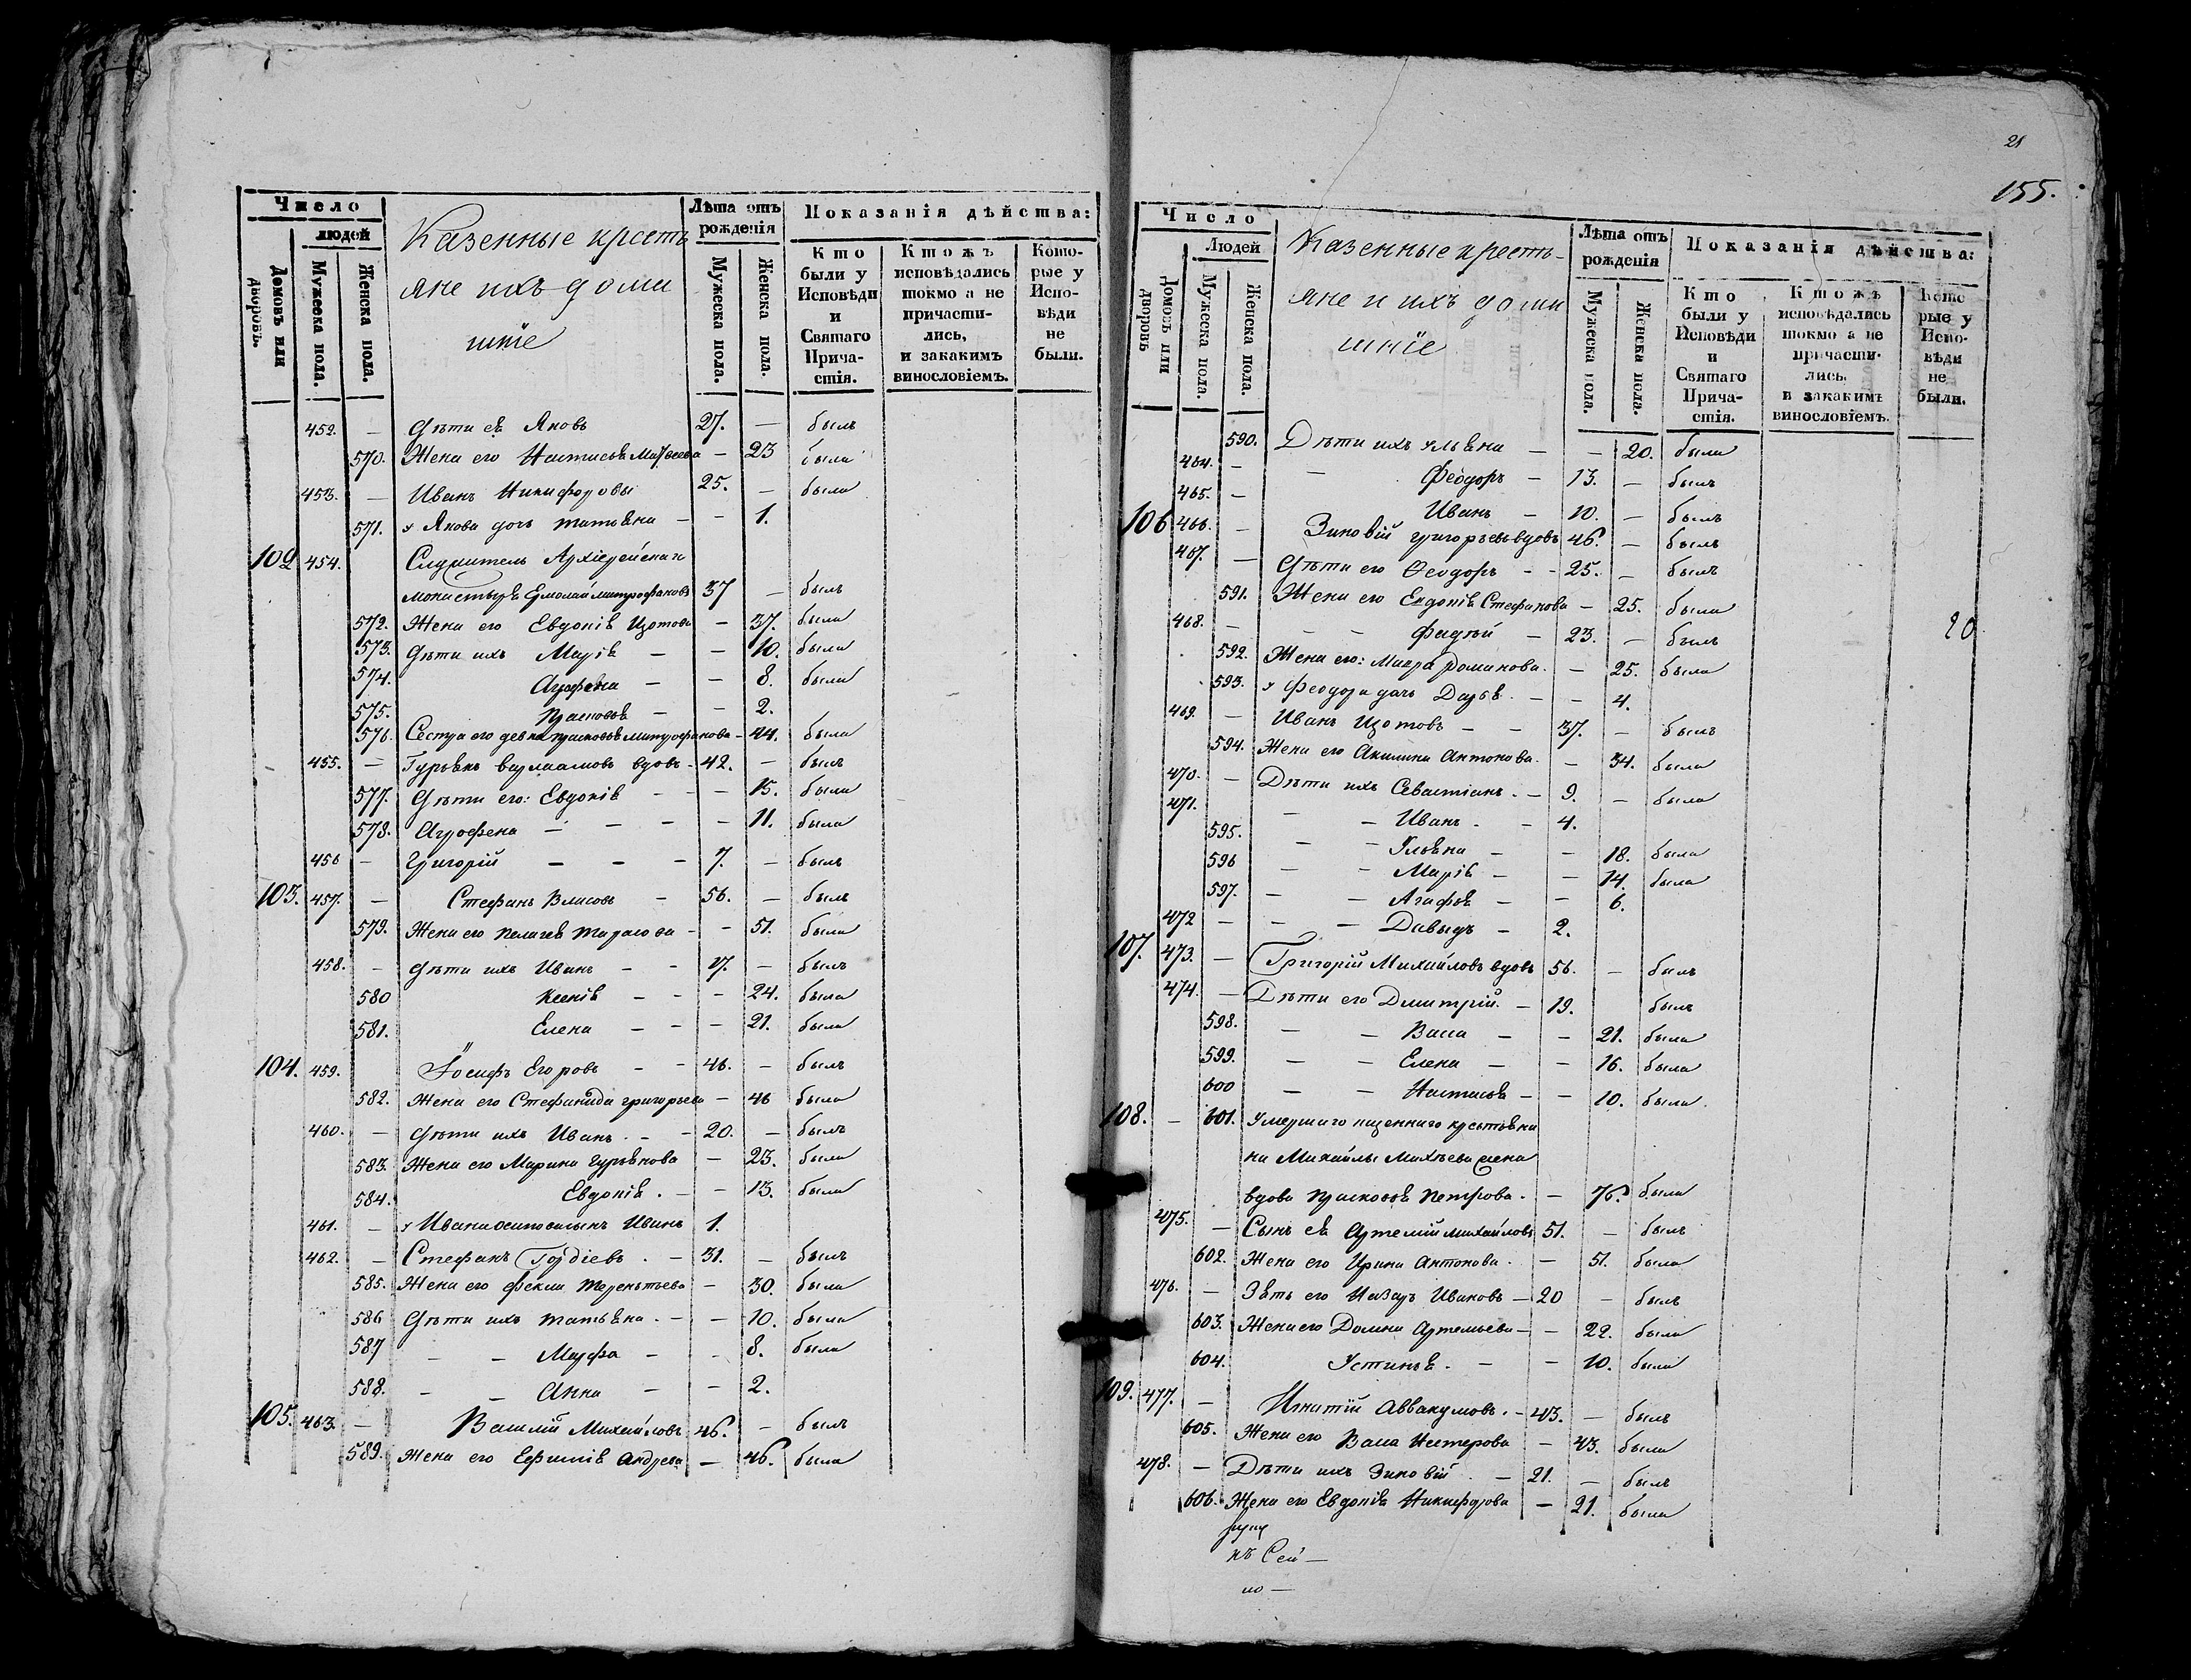 Число
людей
Домовъ или дворовъ.
Мужеска пола.
Женска пола.
Казенные кресть
яне ихъ дома
шніе
Лѣта отъ рожденія
Мужеска пола.
Женска пола.
Показанія дѣйства:
Кто были у Исповѣди и Святаго Причастія.
Ктожъ исповѣдались токмо а не причастились, и закакимъ винословіемъ.
Которые у Исповѣди не были.
452. — Дѣти ея Яковъ 27. — былъ
570. Жена его Настасья Матвеева — 23 была
453. — Иванъ Никифоровы 25. — была
571. у Якова дочь Татьяна — — 1.
102 454. Служитель Архіерейскаго
монастыря Ермолай Митрофановъ 37 — былъ
572. Жена его Евдокія Изотова — 37. была
573. Дѣти ихъ Марія — — 10. была
574. Агрофена — — 8. была
575. Прасковья — — 2.
576. Сестра его девка Прасковья Митрофанова — 44. была
455. — Гурьянъ Варлаамовъ вдовъ — 42. — былъ
577. Дѣти его: Евдокія — — 15. была
578. Агрофена — — — — 11. была
456 — Григорій — — — 7. — былъ
103. 457. — Стефанъ Власовъ — 56. — былъ
579. Жена его Пелагея Тарасова — — 51. была
458. — Дѣти ихъ Иванъ — — 17. — былъ
580 Ксенія — — — 24. была
581. Елена — — — 21. была
104. 459. Іосифъ Егоровъ — — 46. — былъ
582. Жена его Стефанида Григорьева — 46 была
460. — Дѣти ихъ Иванъ. — — 20. — былъ
583. Жена его Марина Гурьянова — 23. была
584. Евдокія. — — 13. была
461. — у Ивана Осипова сынъ Иванъ 1.
462. — Стефанъ Гордіевъ. — 31. — былъ
585. Жена его Фекла Терентьева — 30. была
586 Дѣти ихъ Татьяна. — — 10. была
587 — — Марфа — — 8. была
588. — — Анна — — 2.
105. 463. — Василій Михайловъ 46. — былъ
589. Жена его Ефимія Андреева — 46. была
21
155.
Число
Людей
Домовъ или дворовъ
Мужеска пола.
Женска пола.
Казенные кресть-
яне и ихъ дома
шніе
Лѣта отъ рожденія
Мужеска пола.
Женска пола.
Показанія дѣйства:
Кто были у Исповѣди и Святаго Причастія.
Ктожъ исповѣдались токмо а не причастились, и закакимъ винословіемъ.
Которые у Исповѣди не были.
590. Дѣти ихъ Ульяна — — 20. была
464. — — Феодоръ — 13. — былъ
465. — Иванъ — 10. — былъ
106 466. — Зиновій Григорьевъ вдовъ 46. — былъ
467. — Дѣти его Феодоръ — — 25. — былъ
591. Жена его Евдокія Стефанова — 25. была
468. — — — Фадѣй — 23. — былъ
20
592. Жена его: Мавра Романова. — 25. была
593. у Феодора дочь Дарья. — — 4.
469. — Иванъ Изотовъ — — 37. — былъ
594. Жена его Акилина Антонова. — 34. была
470. — Дѣти ихъ Севастіанъ. — 9. — была
471. — — Иванъ. — 4.
595. — — Ульяна — — 18. была
596 — — Марія — — 14. была
597. — — Агафья — — 6.
472 — — — Давыдъ — 2.
107. 473. — Григорій Михайловъ вдовъ 56. — былъ
474. — Дѣти его Дмитрій. — 19. былъ
598. — — Васса — — 21. была
599. — — Елена — — 16. была
600 — — Настасья — — 10. была.
108. — 601. Умершаго казеннаго крестьяни
на Михайлы Михѣева жена
вдова Прасковья Петрова. — 76. была
475. — Сынъ ея Артемій Михайловъ 51. — былъ
602. Жена его Ирина Антонова. — 51. была
476. — Зять его Назаръ Ивановъ — 20 — былъ
603. Жена его Домна Артемьева — — 22. была
604. Устинья. — — 10. была
109. 477. — Игнатій Аввакумовъ. — 43. — былъ
605. Жена его Васса Нестерова — 43. была
478. — Дѣти ихъ Зиновій. — 21. — былъ
606. Жена его Евдокія Никифорова — 21. была
къ Сей —